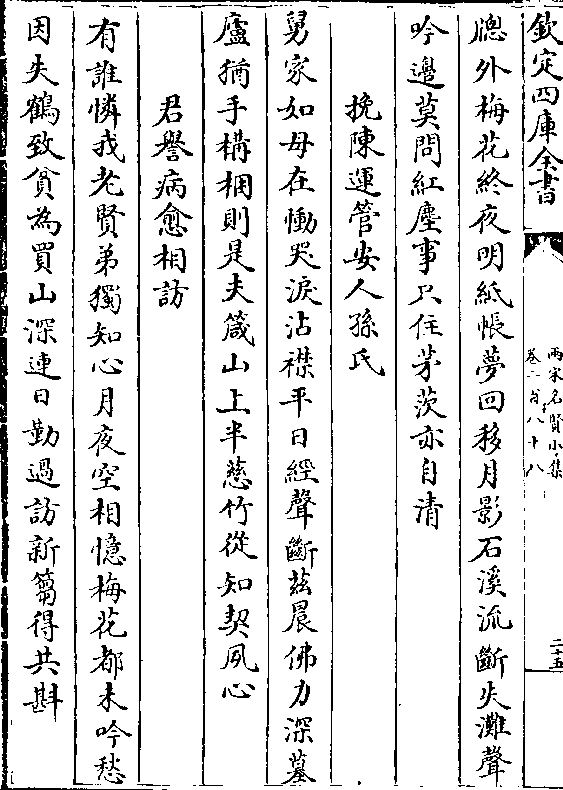 欽定四庫全書
兩宋名賢小集
卷二百八十八
二十五
牕外梅花終夜明紙帳夢回移月影石溪流斷失灘聲
吟邊莫問紅塵事只住茅茨亦自清
挽陳運管安人孫氏
舅家如母在慟哭淚沾襟平日經聲斷兹晨佛力深墓
廬猶手構梱則是夫箴山上半慈竹從知契夙心
君譽病愈相訪
有誰憐我老賢弟獨知心月夜空相憶梅花都未吟愁
因失鶴致貧為買山深連日勤過訪新篘得共斟